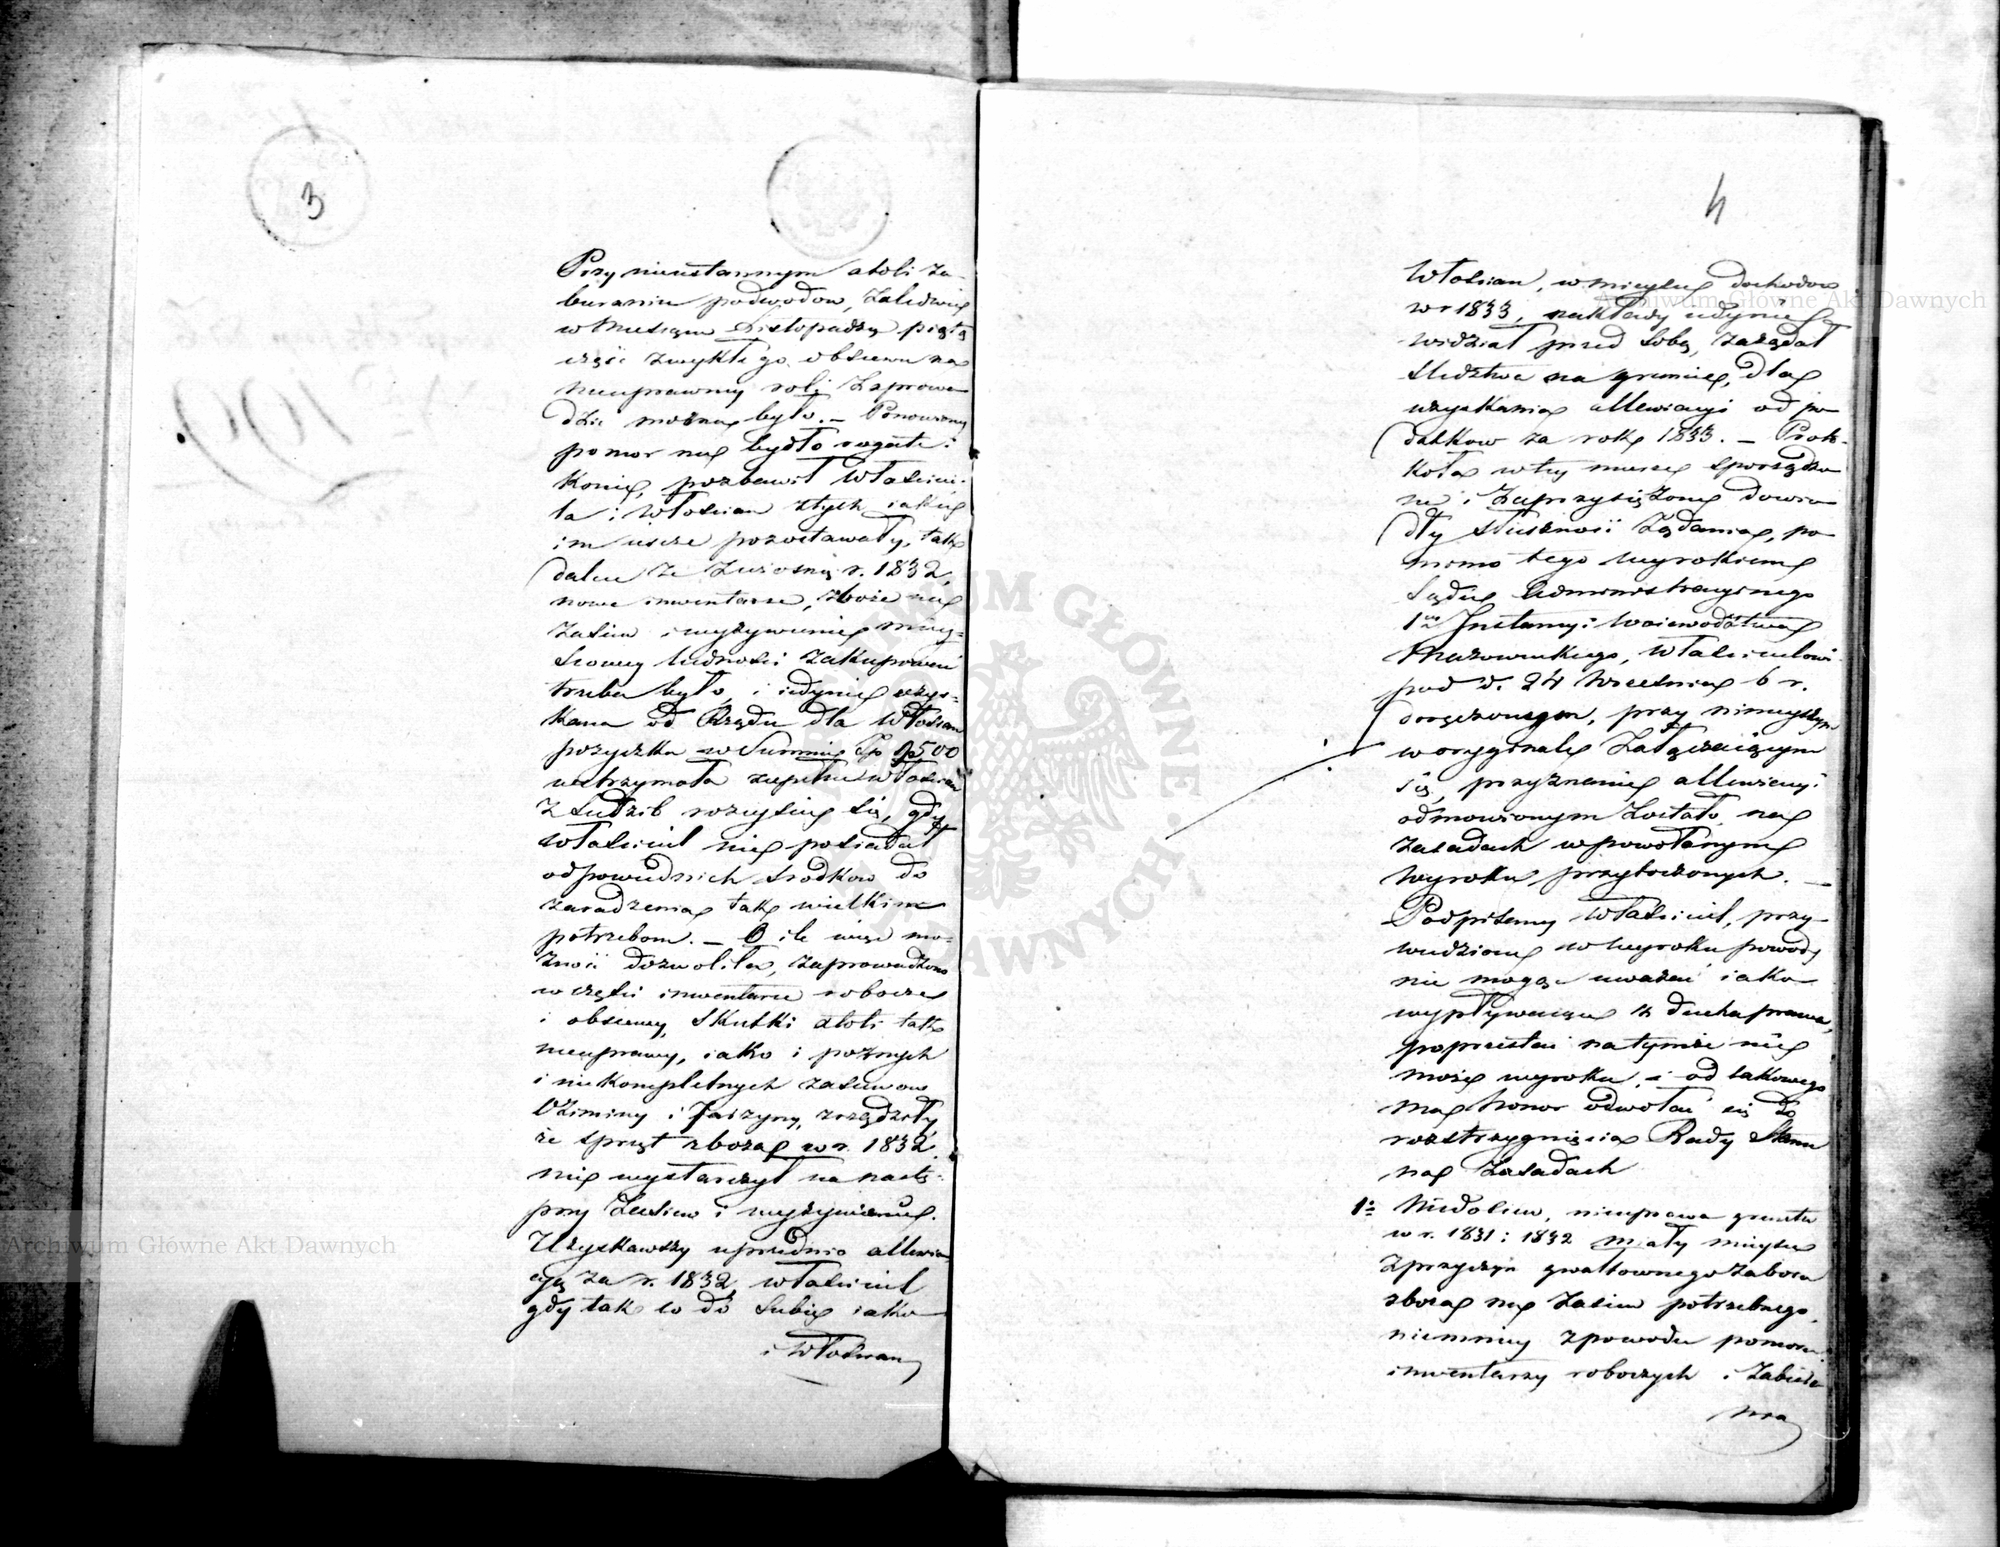 3
Przy nieustannym atoli za-
bieraniu podwodow, zaledwie
w Miesiącu Listopadzie piątą
część zwykłego obsiewu na
nieuprawney roli zaprowa
dzić można było. — Ponowiony
pomor na bydło rogate i
konie, pozbawił Właścicie-
la i Włościan tych jakie
im ieszcze pozostawały, tak
dalece że z wiosną r. 1832,
nowe inwentarze, zboże na
zasiew i wyżywienie miey-
scowey ludności zakupować
trzeba było, i iedynie uzys-
kana od Rządu dla Włościan
pożyczka w Summie Zp 9,500
wstrzymała zupełne Włościan
z siedzib rozeyście się, gdy
Właściciel nie posiadał
odpowiednich srodkow do
zaradzenia tak wielkim
potrzebom. — O ile więc mo-
żność dozwoliła, zaprowadzono
w części inwentarze robocze
i obsiewy, skutki atoli tak
nieuprawy, iako i poznych
i niekompletnych zasiewow
Oziminy i Jarzyny, zrządziły,
że sprzęt zboża w r. 1832.
nie wystarczył na nastę-
pny zasiew i wyżywienie.
Uzyskawszy uprzednio allewia
cyą za r. 1832, właściciel
gdy tak co do siebie iako
i Włościan
4
Włościan, w mieyscu dochodow
w r 1833, nakłady iedynie
widział przed sobą, zażądał
sledztwa na gruncie, dla
uzyskania allewiacyi od po
datkow za rok 1833. — Proto-
koła w tey mierze sporządzo
ne i zaprzysiężone dowio
dły słuszności żądania, po
mimo tego wyrokiem
Sądu Administracyinego
1ey Instancyi Woiewodztwa
Mazowieckiego, Właścicielowi
pod d. 24 Września b r.
doręczonym, przy ninieyszym
w oryginale załączaiącym
się, przyznanie allewiacyi
odmowionym zostało, na
zasadach w powołanym
wyroku przytoczonych. —
Podpisany Właściciel, przy-
wiedzione w wyroku powody
nie mogąc uważać iako
wypływaiące z ducha prawa,
poprzestać na tymże nie
może wyroku, i od takowego
ma honor odwołać się do
rozstrzygnięcia Rady Stanu
na zasadach
1o Niedosiew, nieuprawa gruntu
w r. 1831 i 1832 miały mieysce
z przyczyn gwałtownego zaboru
zboża na zasiew potrzebnego,
niemniey z powodu pomoru
inwentarzy roboczych i zabiera
nia
Archiwum Główne Akt Dawnych
Archiwum Główne Akt Dawnych